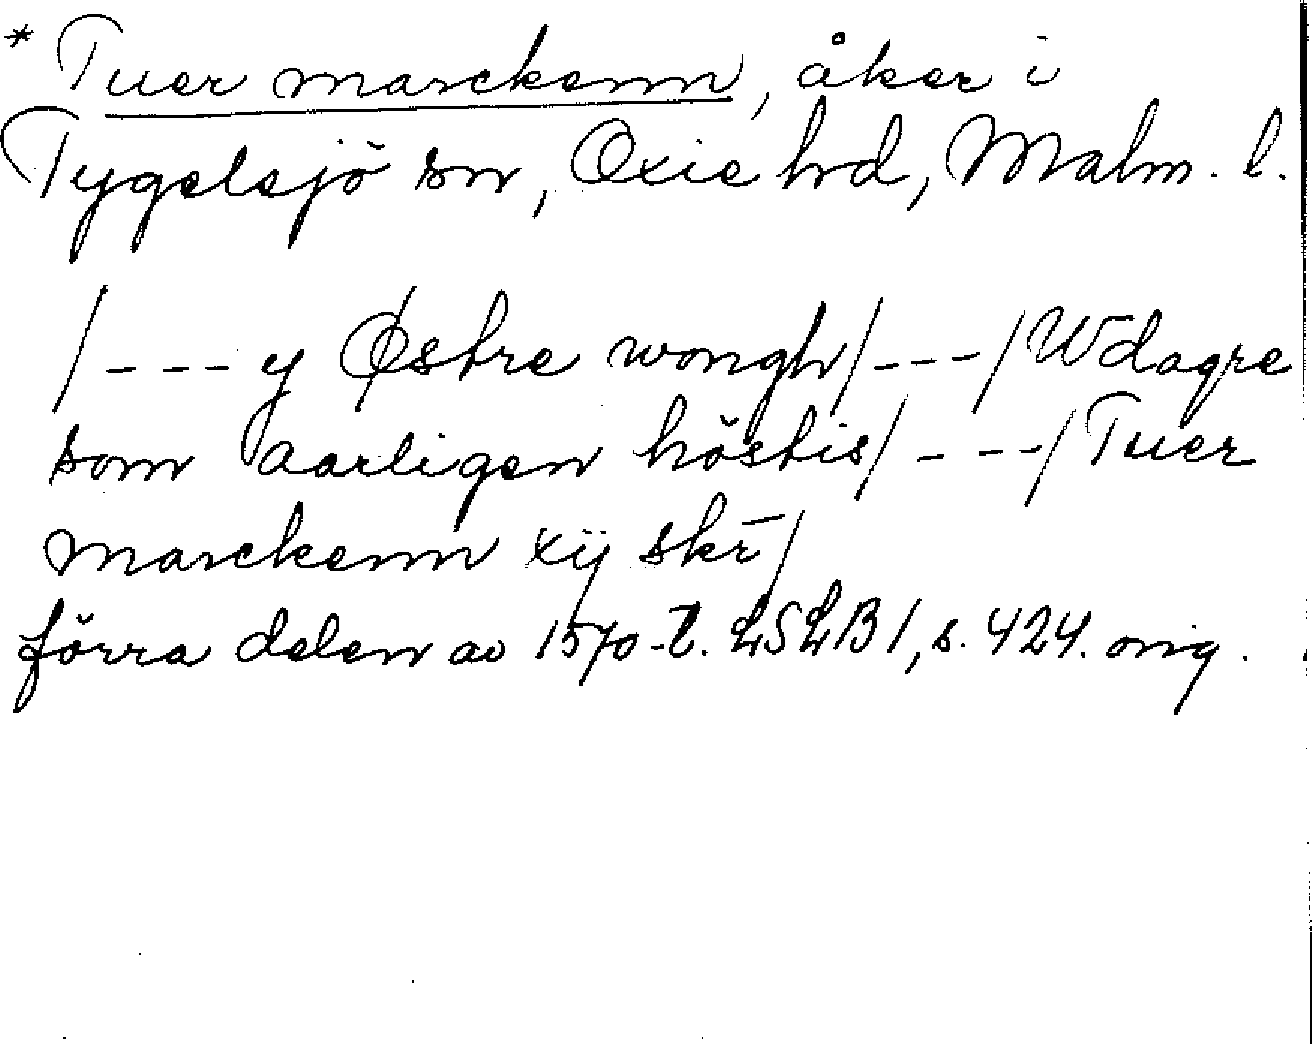 * Tuer marckenn, åker i
Tygelsjö sn, Oxie hd, Malm. l.
/--- y Østre wongh/---/ Wdagre
som aarligen höstis/---/ Tuer
marckenn xij skr̄/
förra delen av 1570-t. LSLB 1, s. 424. orig.